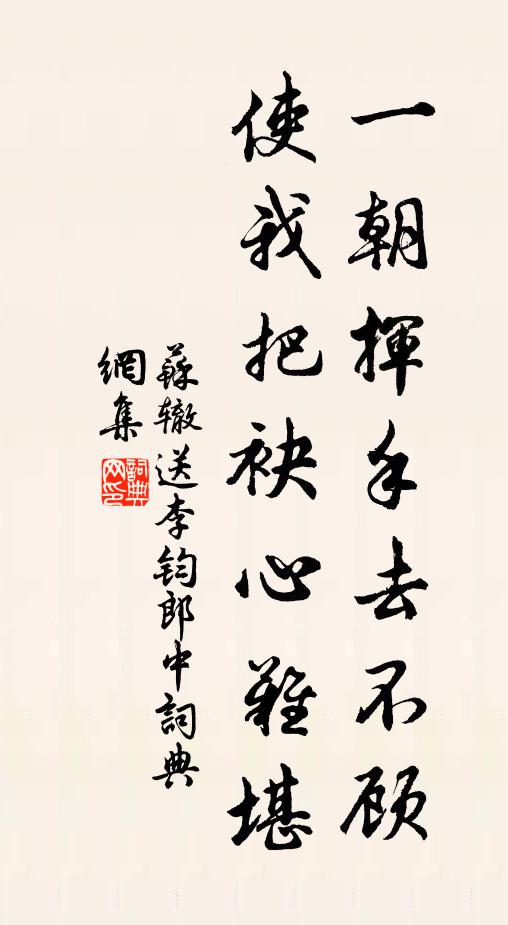 一朝揮手去不顾
使我把袂心難堪
蘇辙送李钧郎中詞典
網集
詞典网印